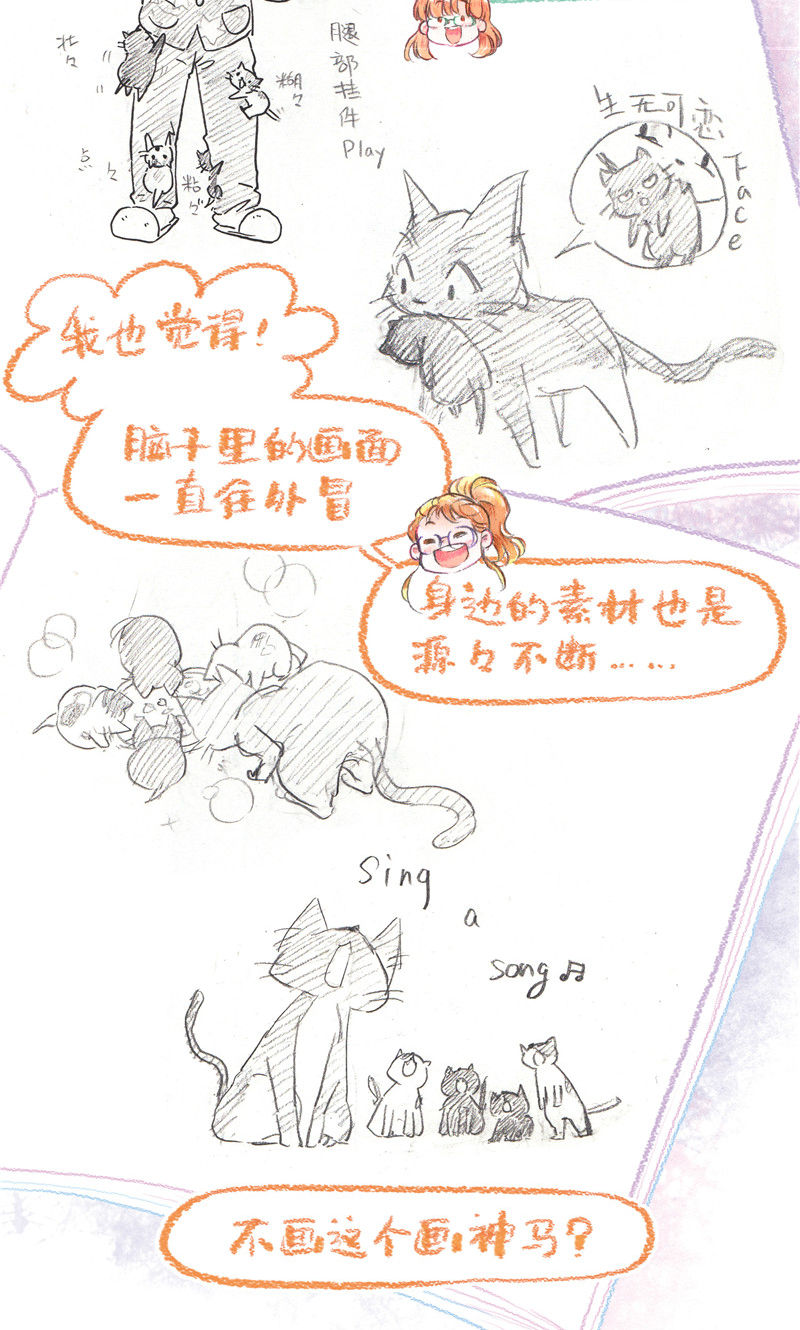 壮々
糊々
点々
粘々
腿部挂件Play
生无可恋
Face
我也觉得!
脑子里的画面
一直往外冒
身边的素材也是
源々不断……
Sing
a
song♫
不画这个画神马?